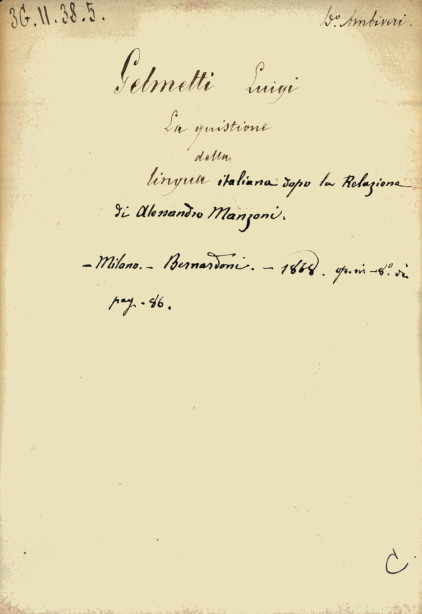 3G.II.38.5.
Dº. Ambiveri.
Gelmetti Luigi
La quistione
della
lingua italiana dopo la Relazione
di Alessandro Manzoni.
- Milano. - Bernardoni. - 1868. op. in - 8º. di
pag. 86.
C